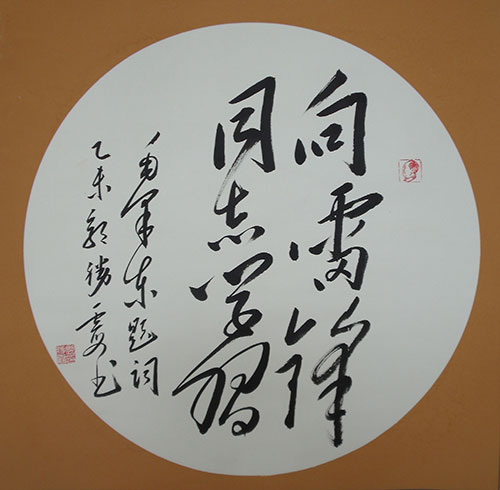 向雷锋
同志学习
毛泽东题词
乙未郭胜书